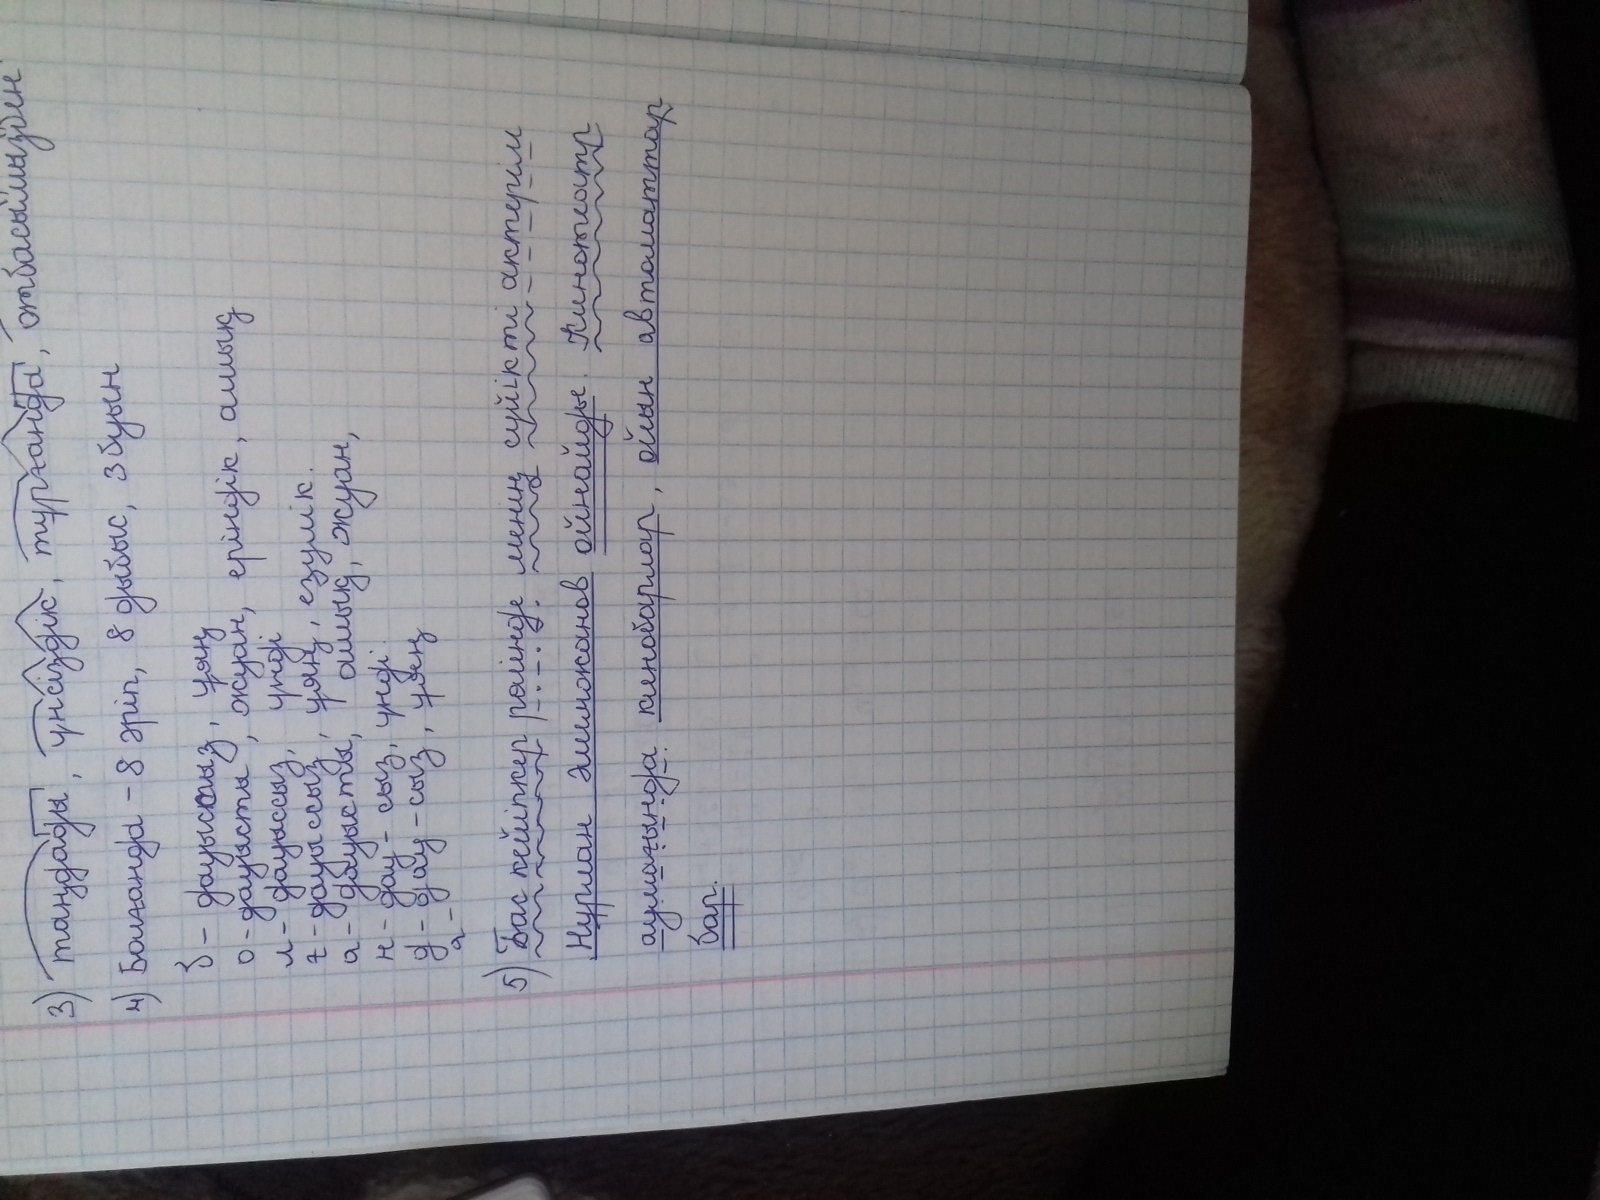 3) таңдады, үнсіздік, тұрғанда, отбасымызбен
4) Болғанда - 8 әріп, 8 дыбыс, 3 буын
б - дауыссыз, ұяң
о - дауысты, жуан, еріндік, ашық
л - дауыссыз, үнді
ғ - дауыссыз, ұяң, езулік.
а - дауысты, ашық, жуан,
н - дау - сыз, үнді
д - дау - сыз, ұяң
а -
5) Бас кейіпкер рөлінде менің сүйікті актерім
Нұрлан Әлімжанов ойнайды. Кинотеатр
аумағында кинобарлар, ойын автоматтар
бар.